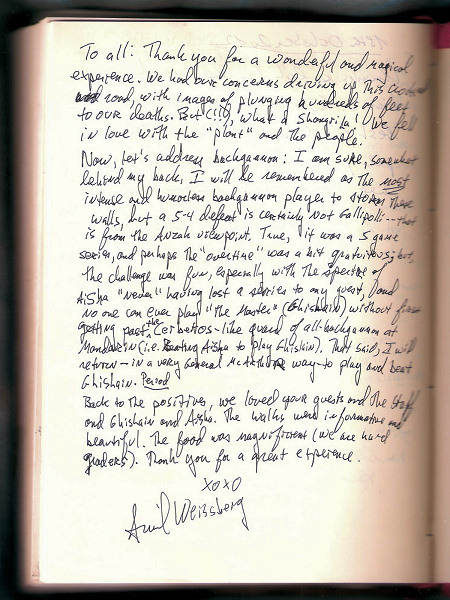 To all: Thank you for a wonderful and magical
experience. We had our concerns driving up this
road, with images of plunging hundreds of feet
to our deaths. But (!!!), what a Shangrila! We fell
in love with the "plant" and the people.
Now, let's address backgammon: I am sure, somewhat
behind my back, I will be remembered as the most
intense and humorless backgammon player to storm these
walls, but a 5-4 defeat is certainly not Gallipolli -- that
is from the Anzak viewpoint. True, it was a 5 game
series, and perhaps the "overtime" was a bit gratuitous; but,
the challenge was fun, especially with the spectre of
Aisha "never" having lost a series to any guest, and
no one can ever play "the Master" (Ghishain) without first
getting past the Cerberos-like guard of all-backgammon at
(i.e. Beating Aisha to play Ghishain). That said, I will
return - in a very General McArthur way - to play and beat
Ghishain. Period
Back to the positives, we loved your guests and the staff
and Ghishain and Aisha. The walks were informative and
beautiful. The food was magnificent (we are hard
graders). Thank you for a great experience.
XOXO
Weissberg